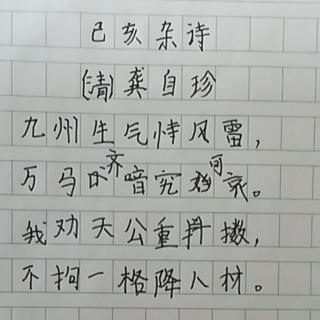 己亥杂诗
(清)龚自珍
九州生气恃风雷,
万马齐喑究可哀。
我劝天公重抖擞,
不拘一格降人材。